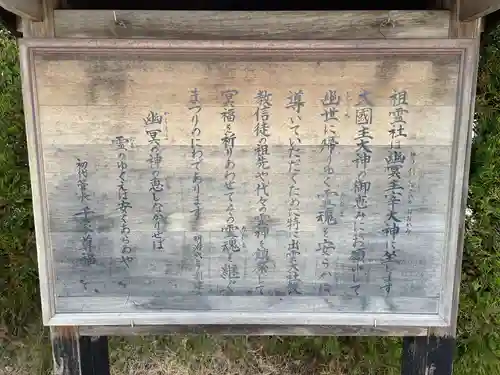 祖霊社は幽冥主宰大神に坐します
大國主大神の御恵みにお頼りして
幽世に帰りゆく霊魂を安らかに
導いていただくために特に出雲大社
教信徒の祖先や代々の霊神を鎮祭して
冥福を祈りあわせて 霊魂を
まつりのにわであります
幽冥の神の恵しなかりせば
霊のゆくえは安くあらめや
初代管長 千家尊福